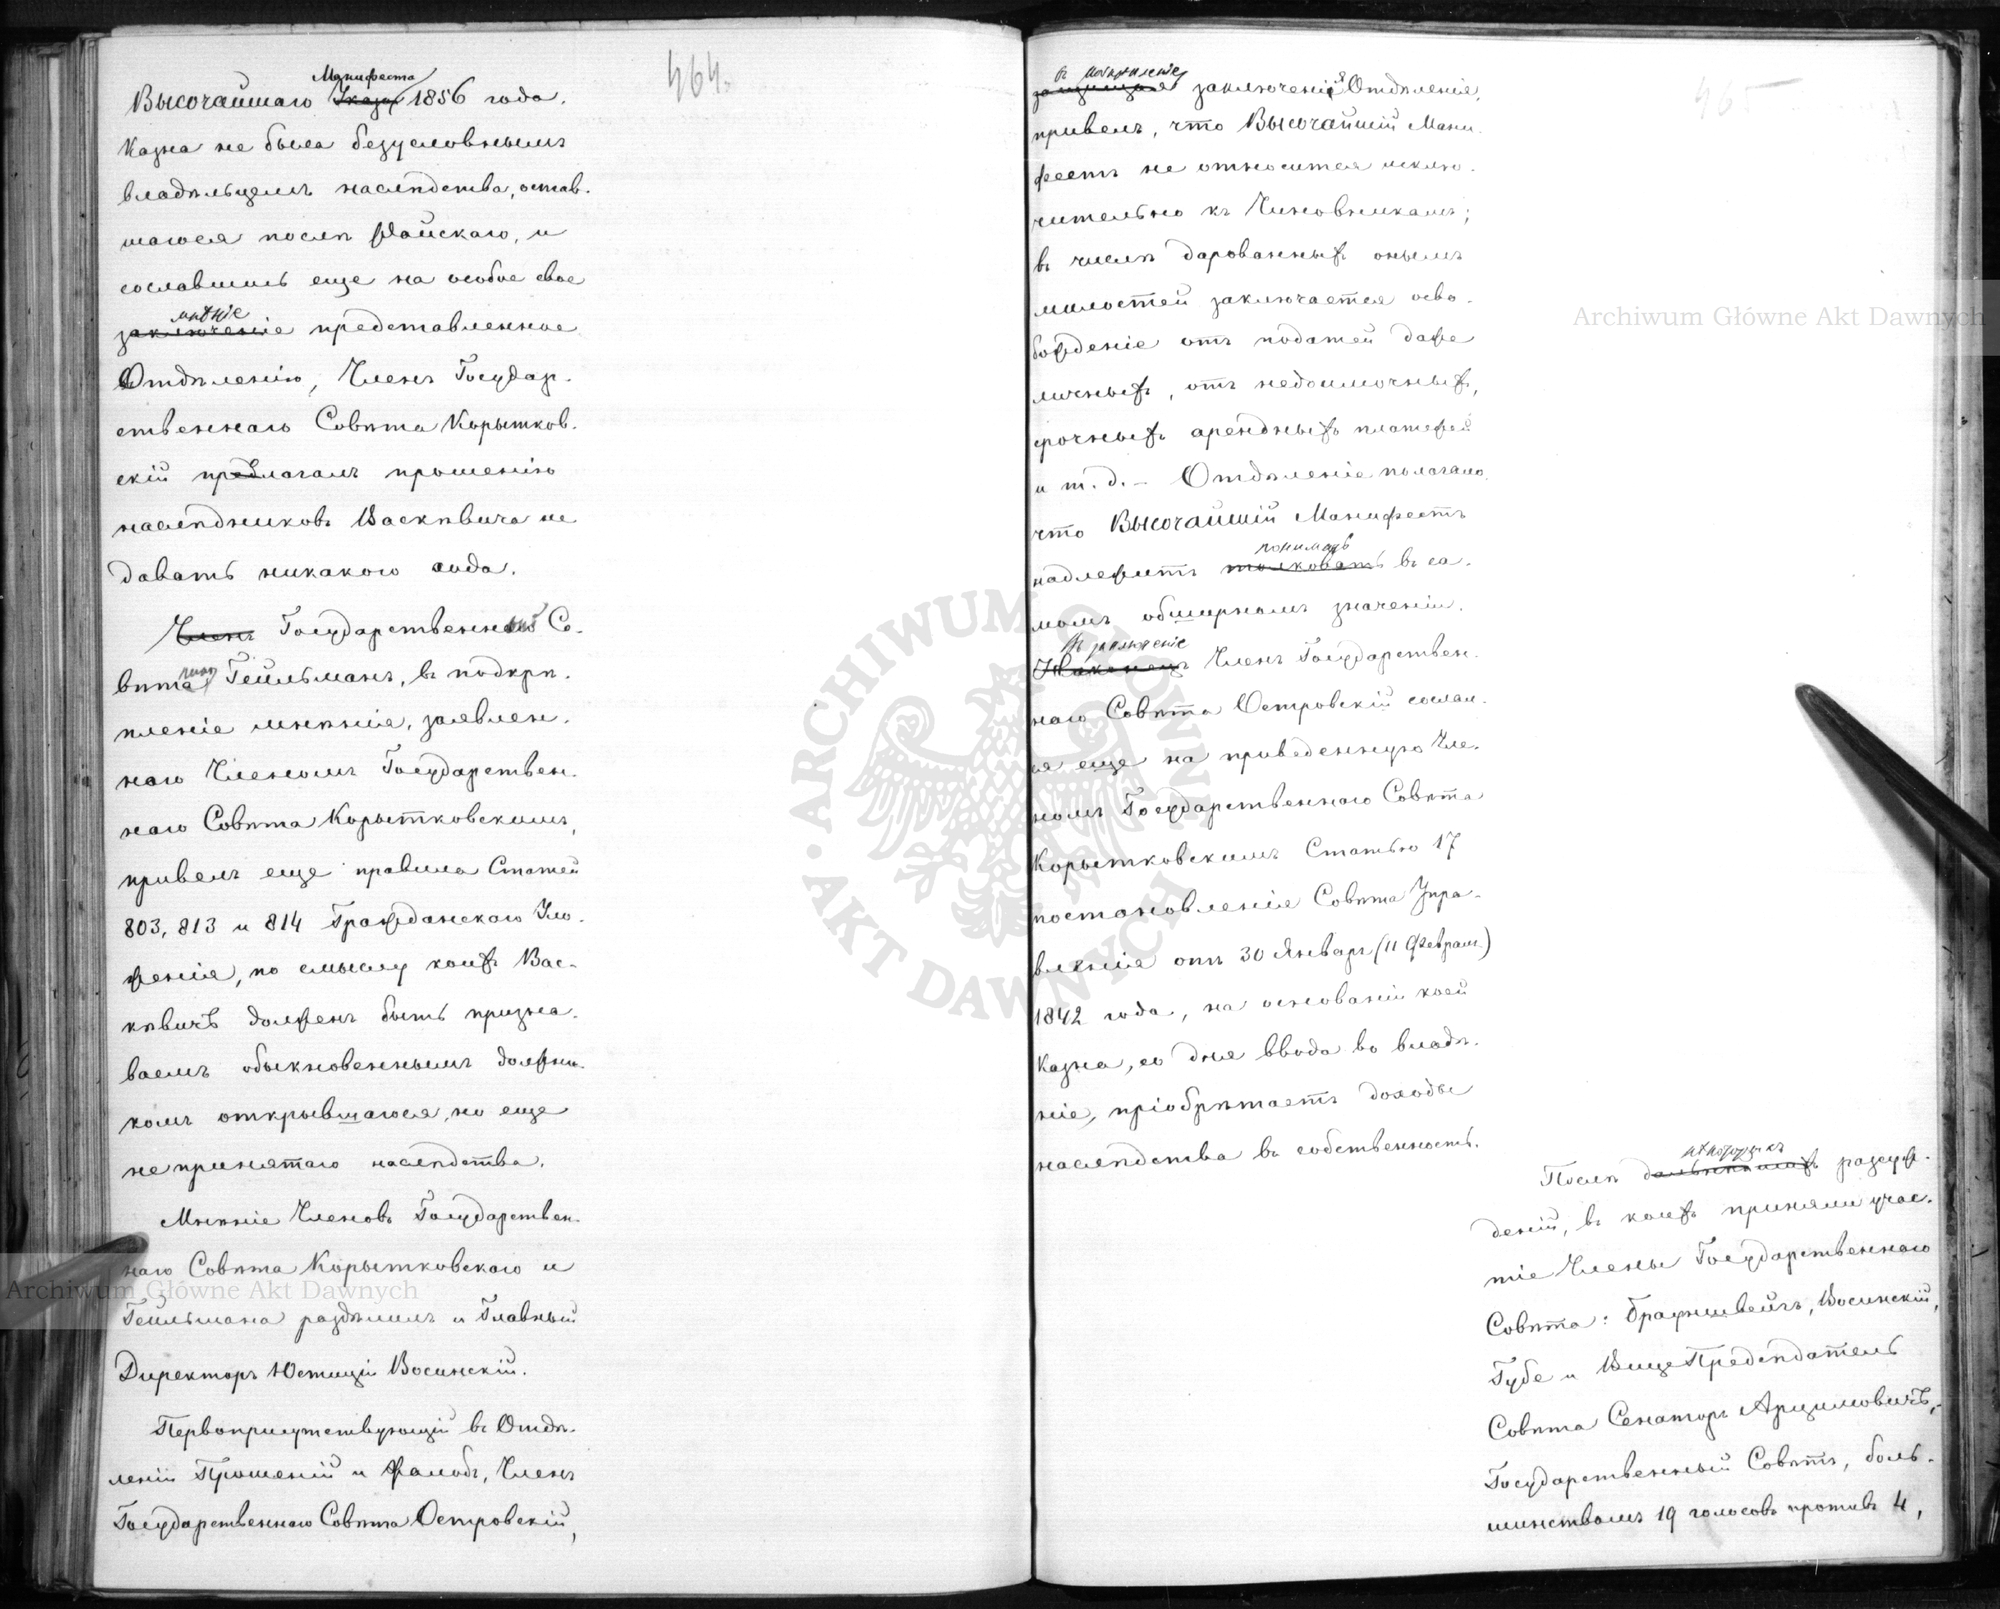 464.
Манифеста
Высочайшаго Указа 1856 года.
Казна не была безусловнымъ
владѣльцемъ наслѣдства, остав-
шагося послѣ Файскаго, и
сославшись еще на особое свое
мнѣніе
заключеніе представленное
Отдѣленію, Членъ Государ-
ственнаго Совѣта Корытков-
скій предлагалъ прошенію
наслѣдниковъ Васкѣвича не
давать никакого хода.
Членъ Государственнаго Со-
вѣта Гейльманъ, въ подкрѣ-
пленіе мнѣнія, заявлен-
наго Членомъ Государствен-
наго Совѣта Корытковскимъ,
привелъ еще правила Статей
803, 813 и 814 Гражданскаго Уло-
женія, по смыслу коихъ Вас-
кѣвичъ долженъ быть призна-
ваемъ обыкновеннымъ должни-
комъ открывшагося, но еще
не принятаго наслѣдства.
Мнѣніе Членовъ Государствен-
наго Совѣта Корытковскаго и
Гейльмана раздѣлилъ и Главный
Директоръ Юстиціи Восинскій.
Первоприсутствующій въ Отдѣ-
леніи Прошеній и Жалобъ, Членъ
Государственнаго Совѣта Островскій,
465
въ
защищая заключенія Отдѣленія,
привелъ, что Высочайшій Мани-
фестъ не относится исклю-
чительно къ Чиновникамъ;
въ числѣ дарованныхъ онымъ
милостей заключается осво-
божденіе отъ податей даже
личныхъ, отъ недоимочныхъ,
срочныхъ арендныхъ платежей
и т. д. – Отдѣленіе полагало,
что Высочайшій Манифестъ
понимать
надлежитъ толковать въ са-
момъ обширномъ значеніи.
Въ заключеніе
Наконецъ Членъ Государствен-
наго Совѣта Островскій сослал-
ся еще на приведенную Чле-
номъ Государственнаго Совѣта
Корытковскимъ Статью 17
постановленія Совѣта Упра-
вленія отъ 30 Января (11 Февраля)
1842 года, на основаніи коей
Казна, со дня ввода во владѣ-
ніе, пріобрѣтаетъ доходы
наслѣдства въ собственность.
нѣкоторыхъ
Послѣ дальнѣйшихъ разсуж-
деній, въ коихъ приняли учас-
тіе Члены Государственнаго
Совѣта: Брауншвейгъ, Восинскій,
Губе и Вице Предсѣдатель
Совѣта Сенаторъ Арцимовичъ,
Государственный Совѣтъ, боль-
шинствомъ 19 голосовъ противъ 4,
Archiwum Główne Akt Dawnych
Archiwum Główne Akt Dawnych
ARCHIWUM GŁÓWNE AKT DAWNYCH